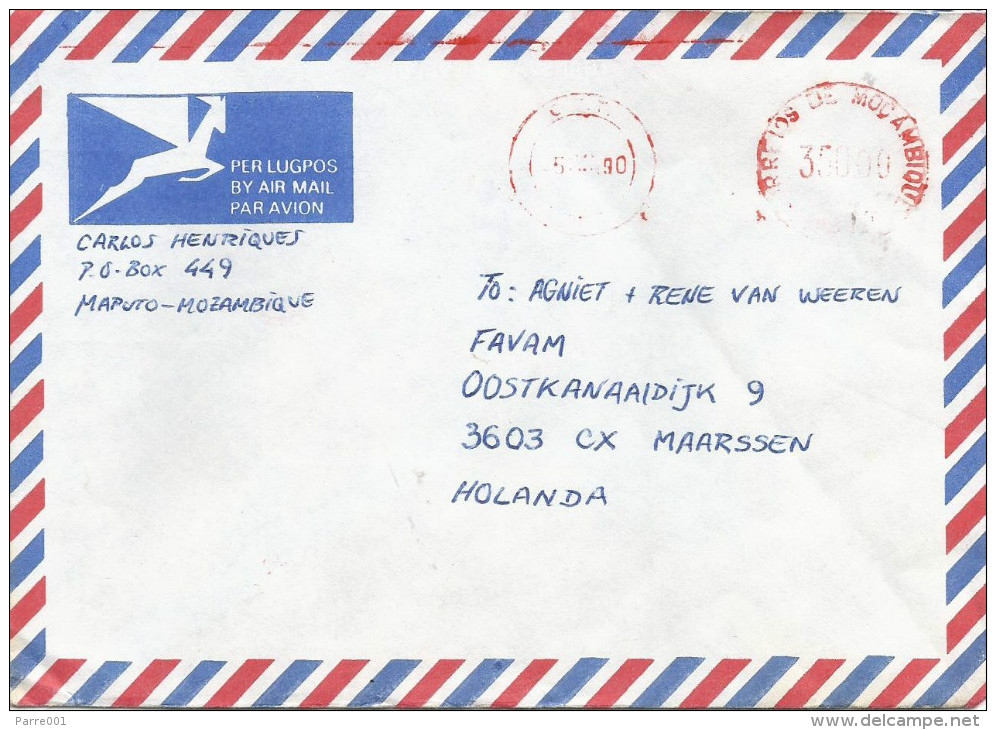 PER LUGPOS
BY AIR MAIL
PAR AVION
CARLOS HENRIQUES
P.O-BOX 449
MAPUTO-MOZAMBIQUE
RREIOS DE MOÇAMBIQU
350.00
90
TO: AGNIET + RENE VAN WEEREN
FAVAM
OOSTKANAALDIJK 9
3603 CX MAARSSEN
HOLANDA
Parre001
www.delcampe.net